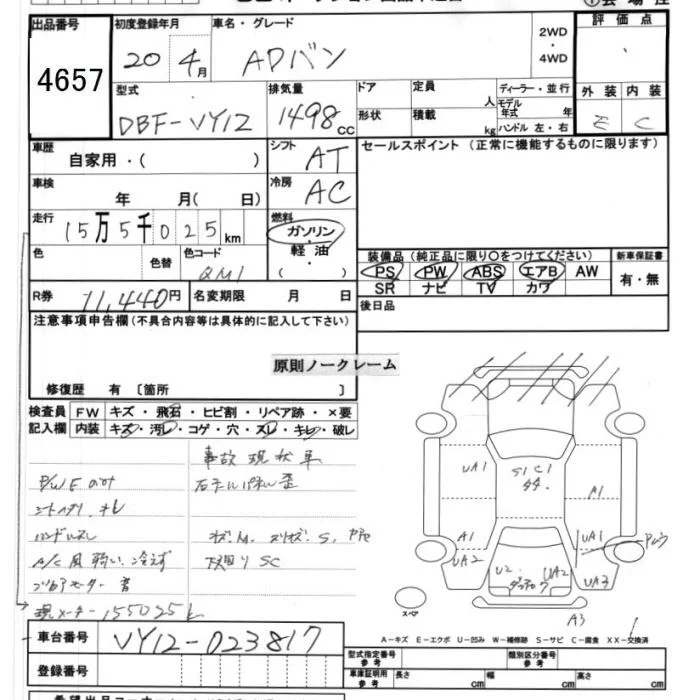 出品番号 初度登録年月 車名・グレード 2WD・4WD 評価点
4657 20 4月 ADバン
型式 排気量 ドア 定員 人 ディーラー・並行 外装 内装
DBF-VY12 1498cc 形状 積載 kg モデル年式 年 ハンドル 左・右 E C
車歴 自家用・( ) シフト AT セールスポイント (正常に機能するものに限ります)
車検 年 月( 日) 冷房 AC
走行 15万5千025km 燃料 ガソリン・軽油・( )
色 色替 色コード QM1 装備品 (純正品に限り○をつけてください) 新車保証書
PS PW ABS エアB AW 有・無
SR ナビ TV カワ
R券 11,440円 名変期限 月 日 後日品
注意事項申告欄(不具合内容等は具体的に記入して下さい)
原則ノークレーム
修復歴 有 [箇所 ]
検査員 FW キズ・飛石・ヒビ割・リペア跡・×要
記入欄 内装 キズ・汚レ・コゲ・穴・スレ・キレ・破レ
事故現状車
ハンドルスレ
A/C 風弱い 冷えず
下廻り SC
現メーター155025k
UA1 S1 C1 A1
A1 UA1
UA2 U2 UA2 UA3
A3
スペア
A-キズ E-エクボ U-凹み W-補修跡 S-サビ C-腐食 XX-交換済
車台番号 VY12-023817
登録番号
型式指定番号 参考 類別区分番号 参考
車庫証明用 参考 長さ cm 幅 cm 高さ cm